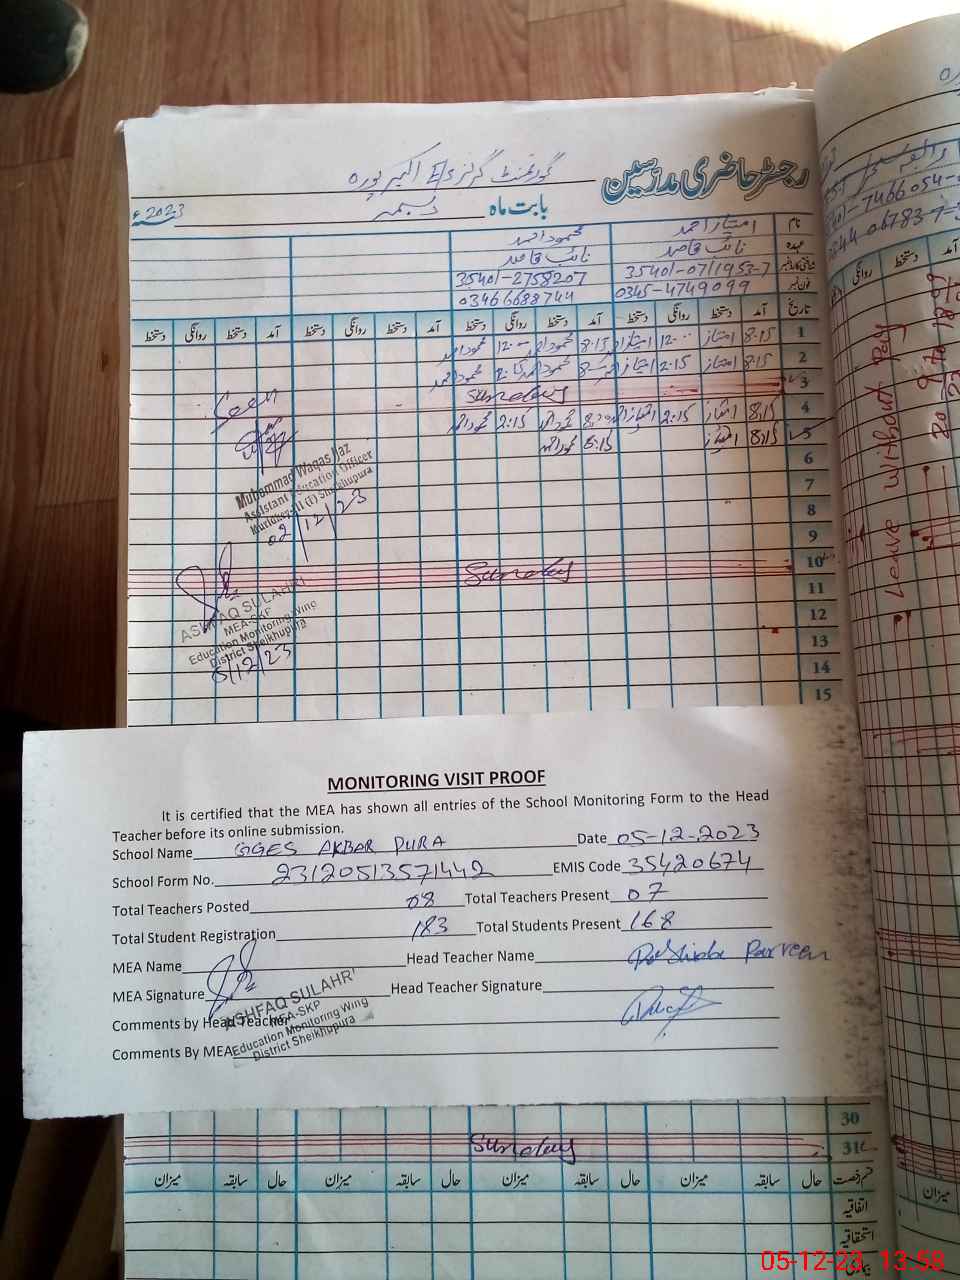 رجسٹر حاضری مدرسین گورنمنٹ گرلز E/S اکبر پورہ
بابت ماہ دسمبر 2023ء
نام امتیاز احمد محمود احمد
عہدہ نائب قاصد نائب قاصد
شناختی کارڈ نمبر 35401-0711953-7 35401-2758207
فون نمبر 0345-4749099 03466688744
تاریخ آمد دستخط روانگی دستخط آمد دستخط روانگی دستخط آمد دستخط روانگی دستخط آمد دستخط روانگی دستخط
1 8:15 امتیاز 12:00 امتیاز 8:15 محمود احمد 12:00 محمود احمد
2 8:15 امتیاز 2:15 امتیاز محمود احمد 2:15 محمود احمد
3 Sunday
4 8:15 امتیاز 2:15 امتیاز محمود احمد 2:15 محمود احمد
5 8:15 امتیاز محمود احمد
6
7
8
9
10 Sunday
11
12
13
14
15
Seen
Muhammad Waqas Ijaz
Assistant Education Officer
Muridke-II (F) Sheikhupura
02/12/23
ASHFAQ SULAHRI
MEA-SKP
Education Monitoring Wing
District Sheikhupura
5/12/23
Leave without Pay
MONITORING VISIT PROOF
It is certified that the MEA has shown all entries of the School Monitoring Form to the Head
Teacher before its online submission.
School Name GGES AKBAR PURA Date 05-12-2023
School Form No. 23120513571442 EMIS Code 35420674
Total Teachers Posted 08 Total Teachers Present 07
Total Student Registration 183 Total Students Present 168
MEA Name Head Teacher Name Parveen
MEA Signature Head Teacher Signature
Comments by Head Teacher
Comments By MEA
ASHFAQ SULAHRI
MEA-SKP
Education Monitoring Wing
District Sheikhupura
30
31 Sunday
قسم رخصت حال سابقہ میزان حال سابقہ میزان حال سابقہ میزان حال سابقہ میزان
اتفاقیہ
استحقاقیہ
میزان
05-12-23 13:58